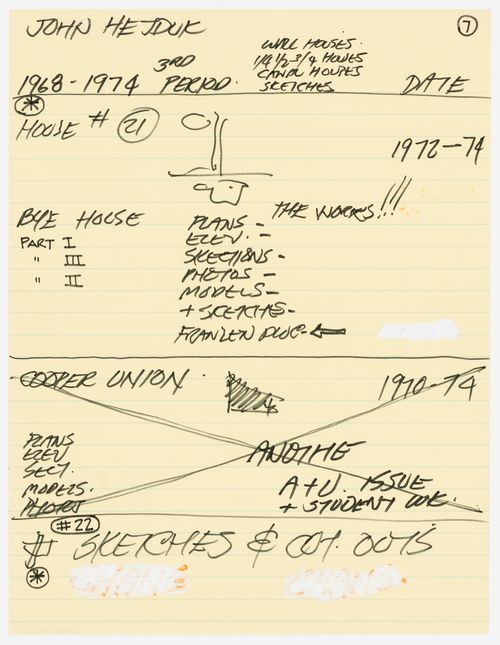 JOHN HEJDUK
7
WALL HOUSES
1/4 1/2 3/4 HOUSES
3RD
SKETCHES
1968-1974 PERIOD. DATE
HOUSE # 21
1972-74
THE WORKS!!!
BYE HOUSE
PART I
" III
" II
PLANS -
ELEV. -
SKECTIONS -
PHOTOS -
MODELS -
+ SKETCHES -
FRANZEN
COOPER UNION.
1970-74
PLANS
ELEV
SECT.
MODELS.
PHOTOS
ANOTHE
A+U. ISSUE
+ STUDENT WK.
#22
SKETCHES & CUT OUTS